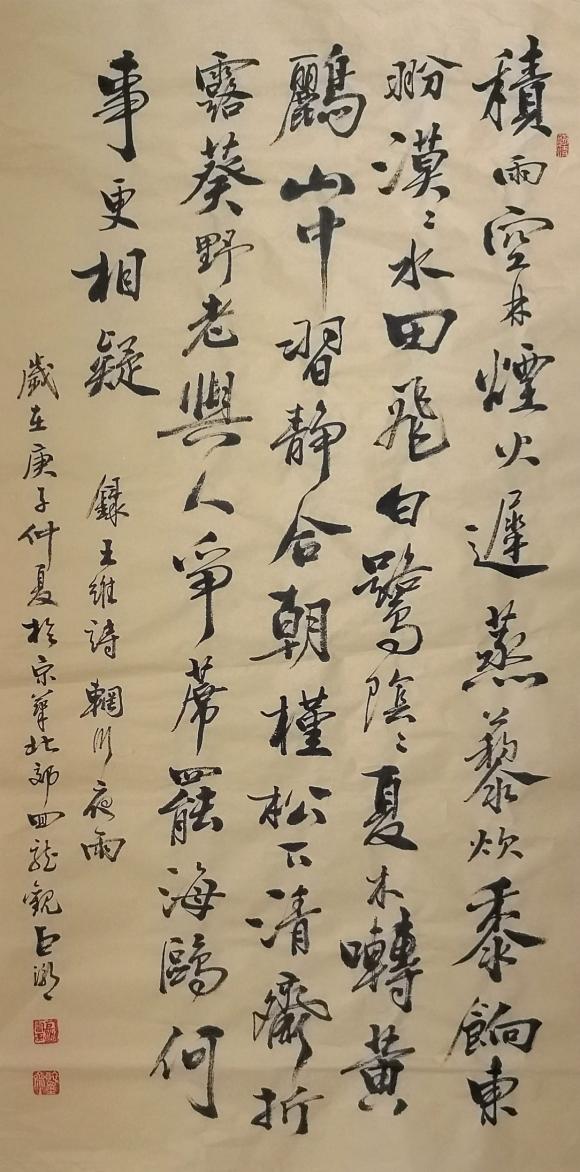 積雨空林煙火遲蒸藜炊黍餉東
漠〻水田飛白鷺陰〻夏木囀黃
鸝山中習靜合朝槿松下清齋折
露葵野老與人爭蓆罷海鷗何
事更相疑
錄王維詩輞川夜雨
歲在庚子仲夏於京華北郊回龍觀